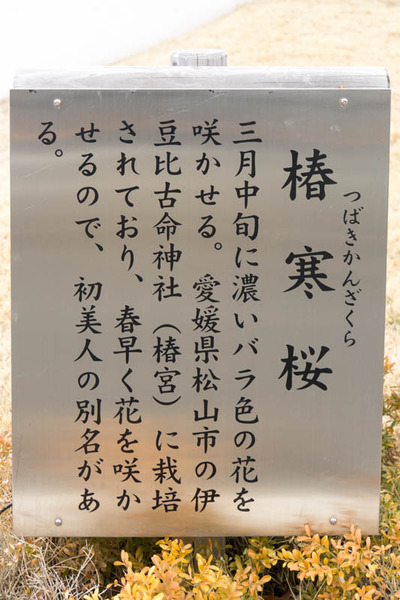 椿寒桜
つばきかんざくら
三月中旬に濃いバラ色の花を
咲かせる。愛媛県松山市の伊
豆比古命神社（椿宮）に栽培
されており、春早く花を咲か
せるので、初美人の別名があ
る。